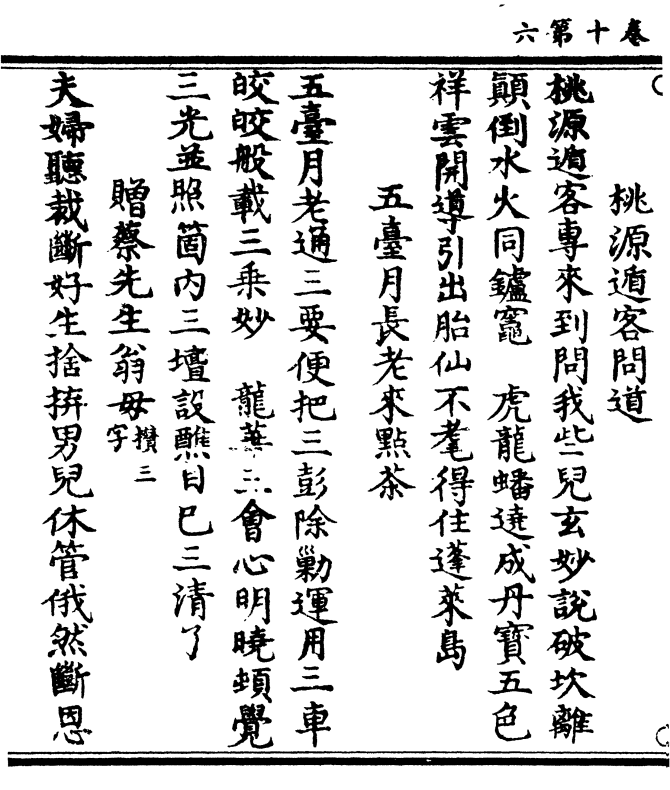 卷十第六
桃源遁客問道
桃源遁客專來到問我些兒玄妙說破坎離
顛倒水火同鑪竈　虎龍蟠遶成丹寶五色
祥雲開導引出胎仙不耄得住蓬萊島
五臺月長老來點茶
五臺月老通三要便把三彭除剿運用三車
皎皎般載三乘妙　龍華三會心明曉頓覺
三光並照箇內三壇設醮自已三清了
贈蔡先生翁母攢三字
夫婦聽裁斷好生捨拚男兒休管俄然斷恩